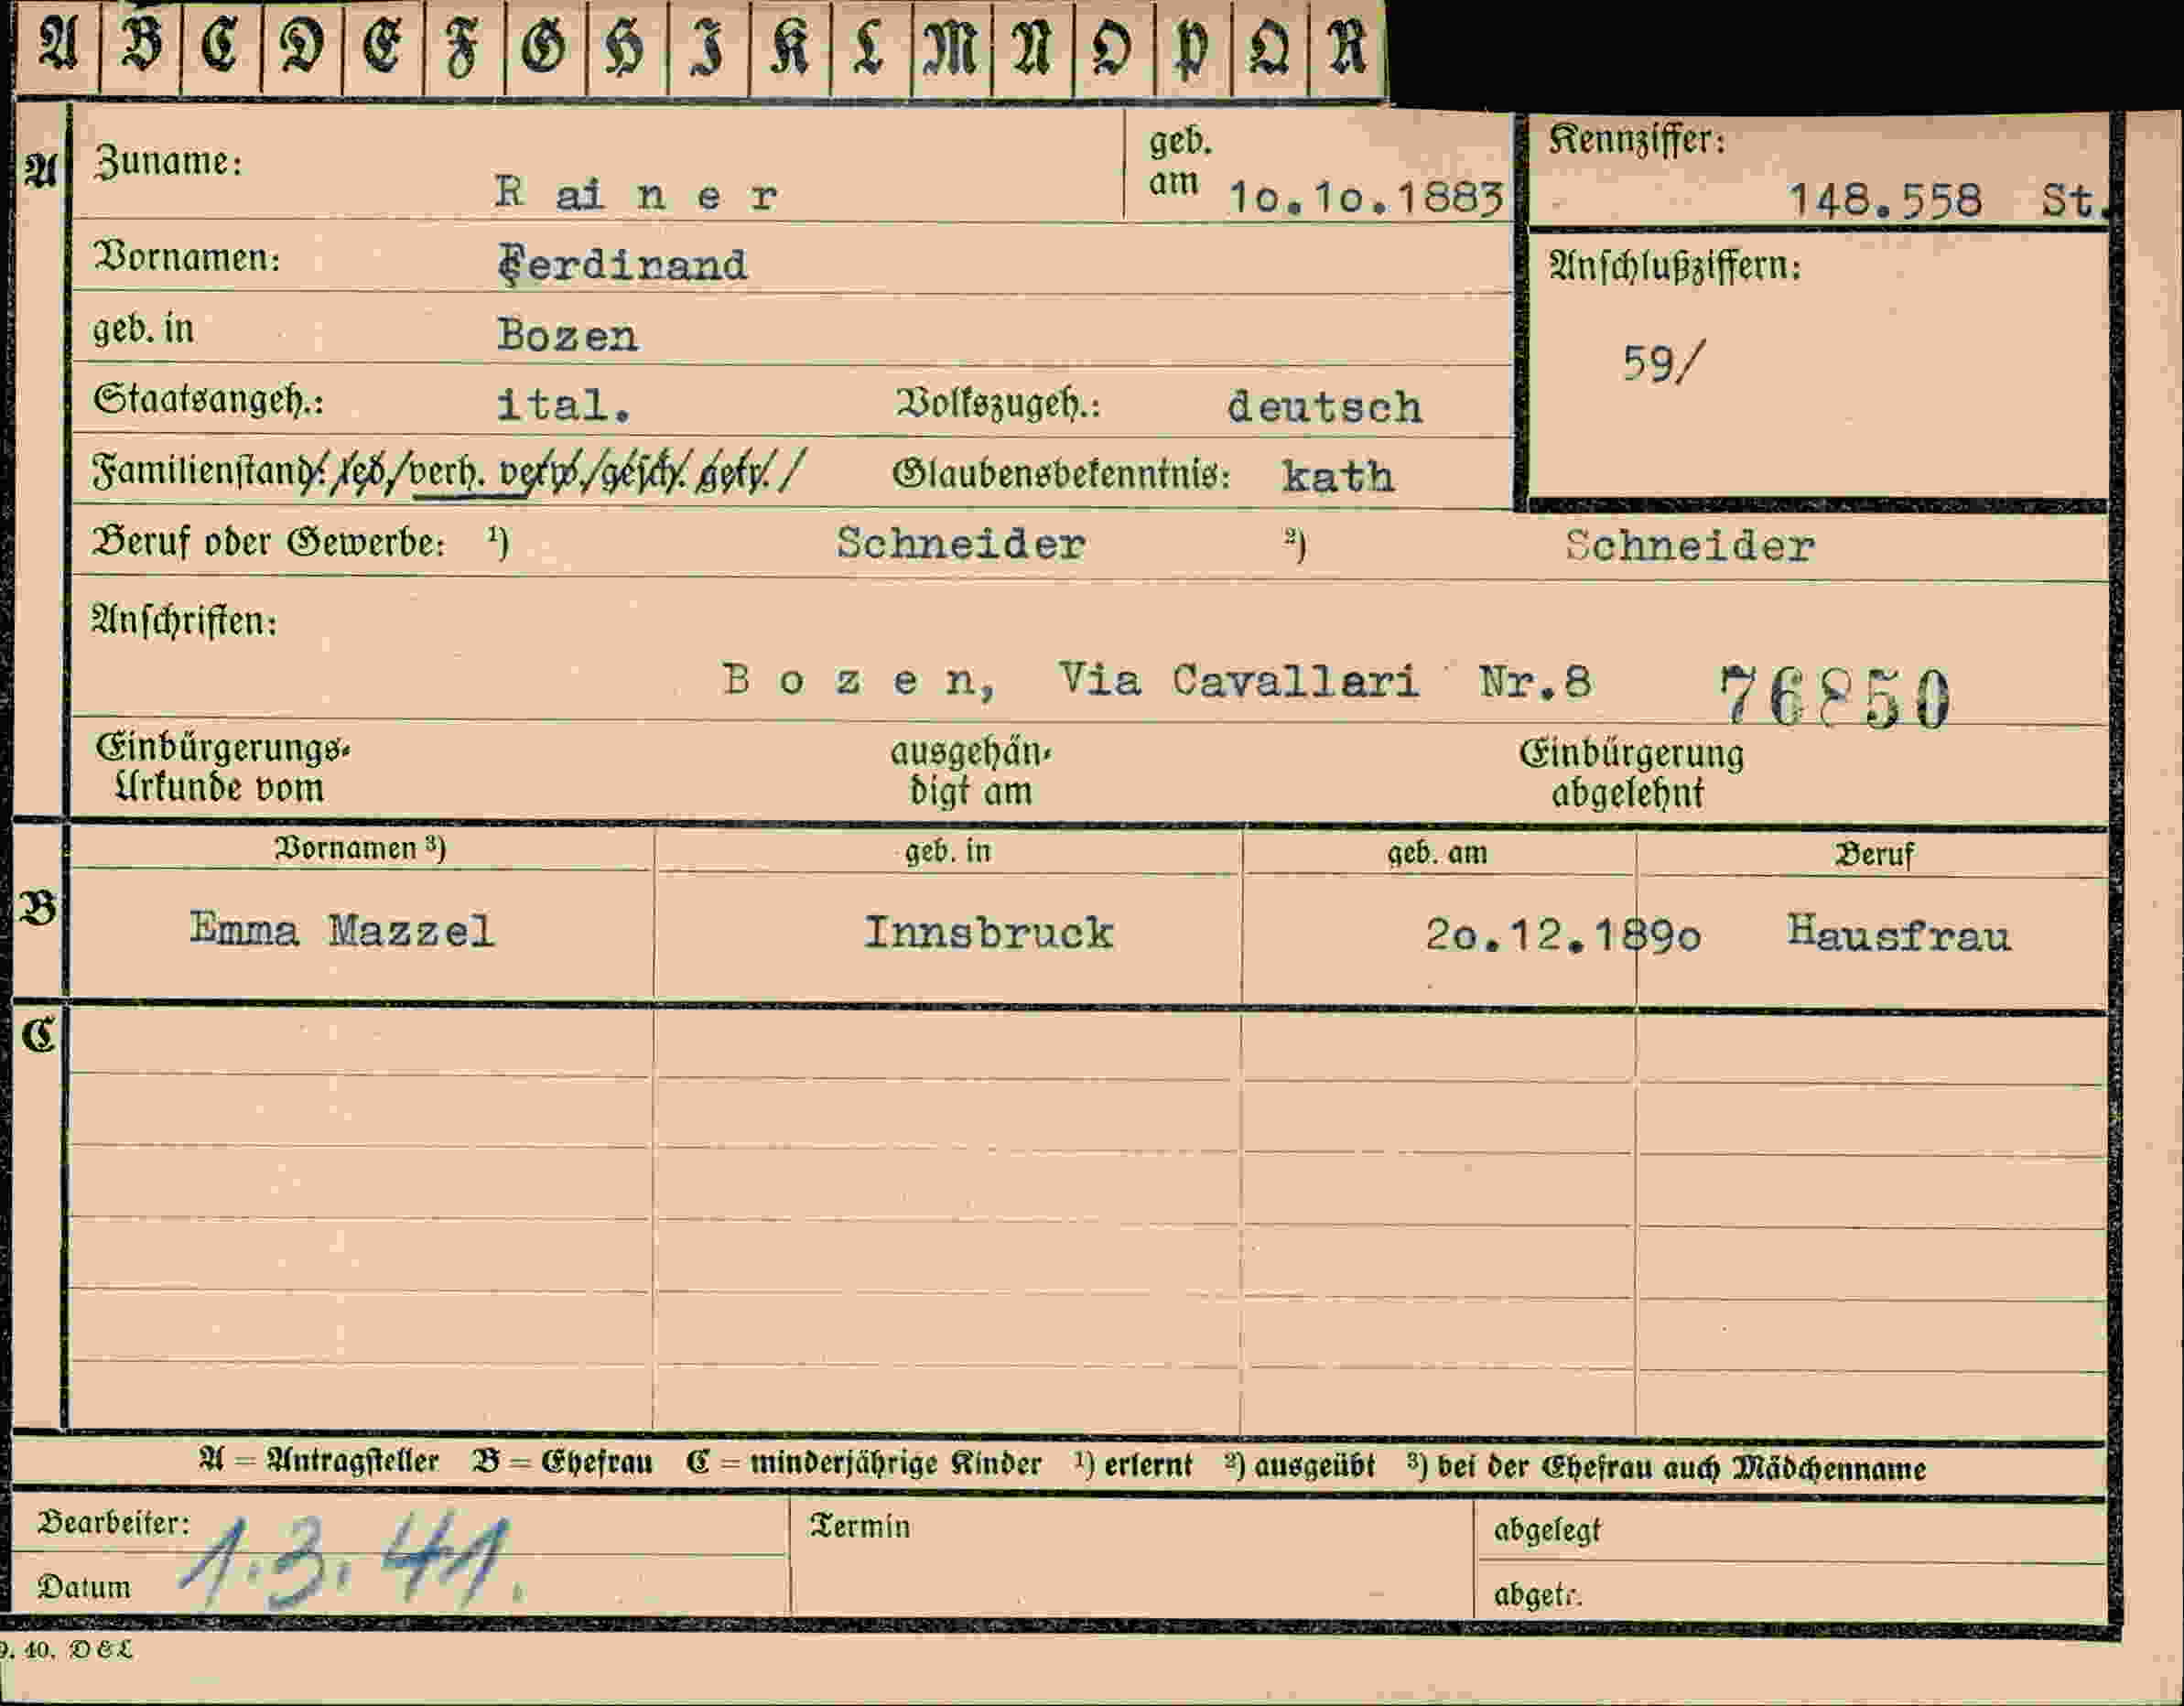 A B C D E F G H J K L M N O P Q R
A Zuname: Rainer geb. am 10.10.1883 Kennziffer: 148.558 St.
Vornamen: Ferdinand Anschlußziffern:
geb. in Bozen 59/
Staatsangeh.: ital. Volkszugeh.: deutsch
Familienstand: led. verh. verw. gesch. getr. Glaubensbekenntnis: kath
Beruf oder Gewerbe: ¹) Schneider ²) Schneider
Anschriften:
Bozen, Via Cavallari Nr.8 76850
Einbürgerungs- ausgehän- Einbürgerung
Urkunde vom digt am abgelehnt
Vornamen ³) geb. in geb. am Beruf
B Emma Mazzel Innsbruck 20.12.1890 Hausfrau
C
A = Antragsteller B = Ehefrau C = minderjährige Kinder ¹) erlernt ²) ausgeübt ³) bei der Ehefrau auch Mädchenname
Bearbeiter: Termin abgelegt
1.3.41.
Datum abgetr.
9. 40. D&L